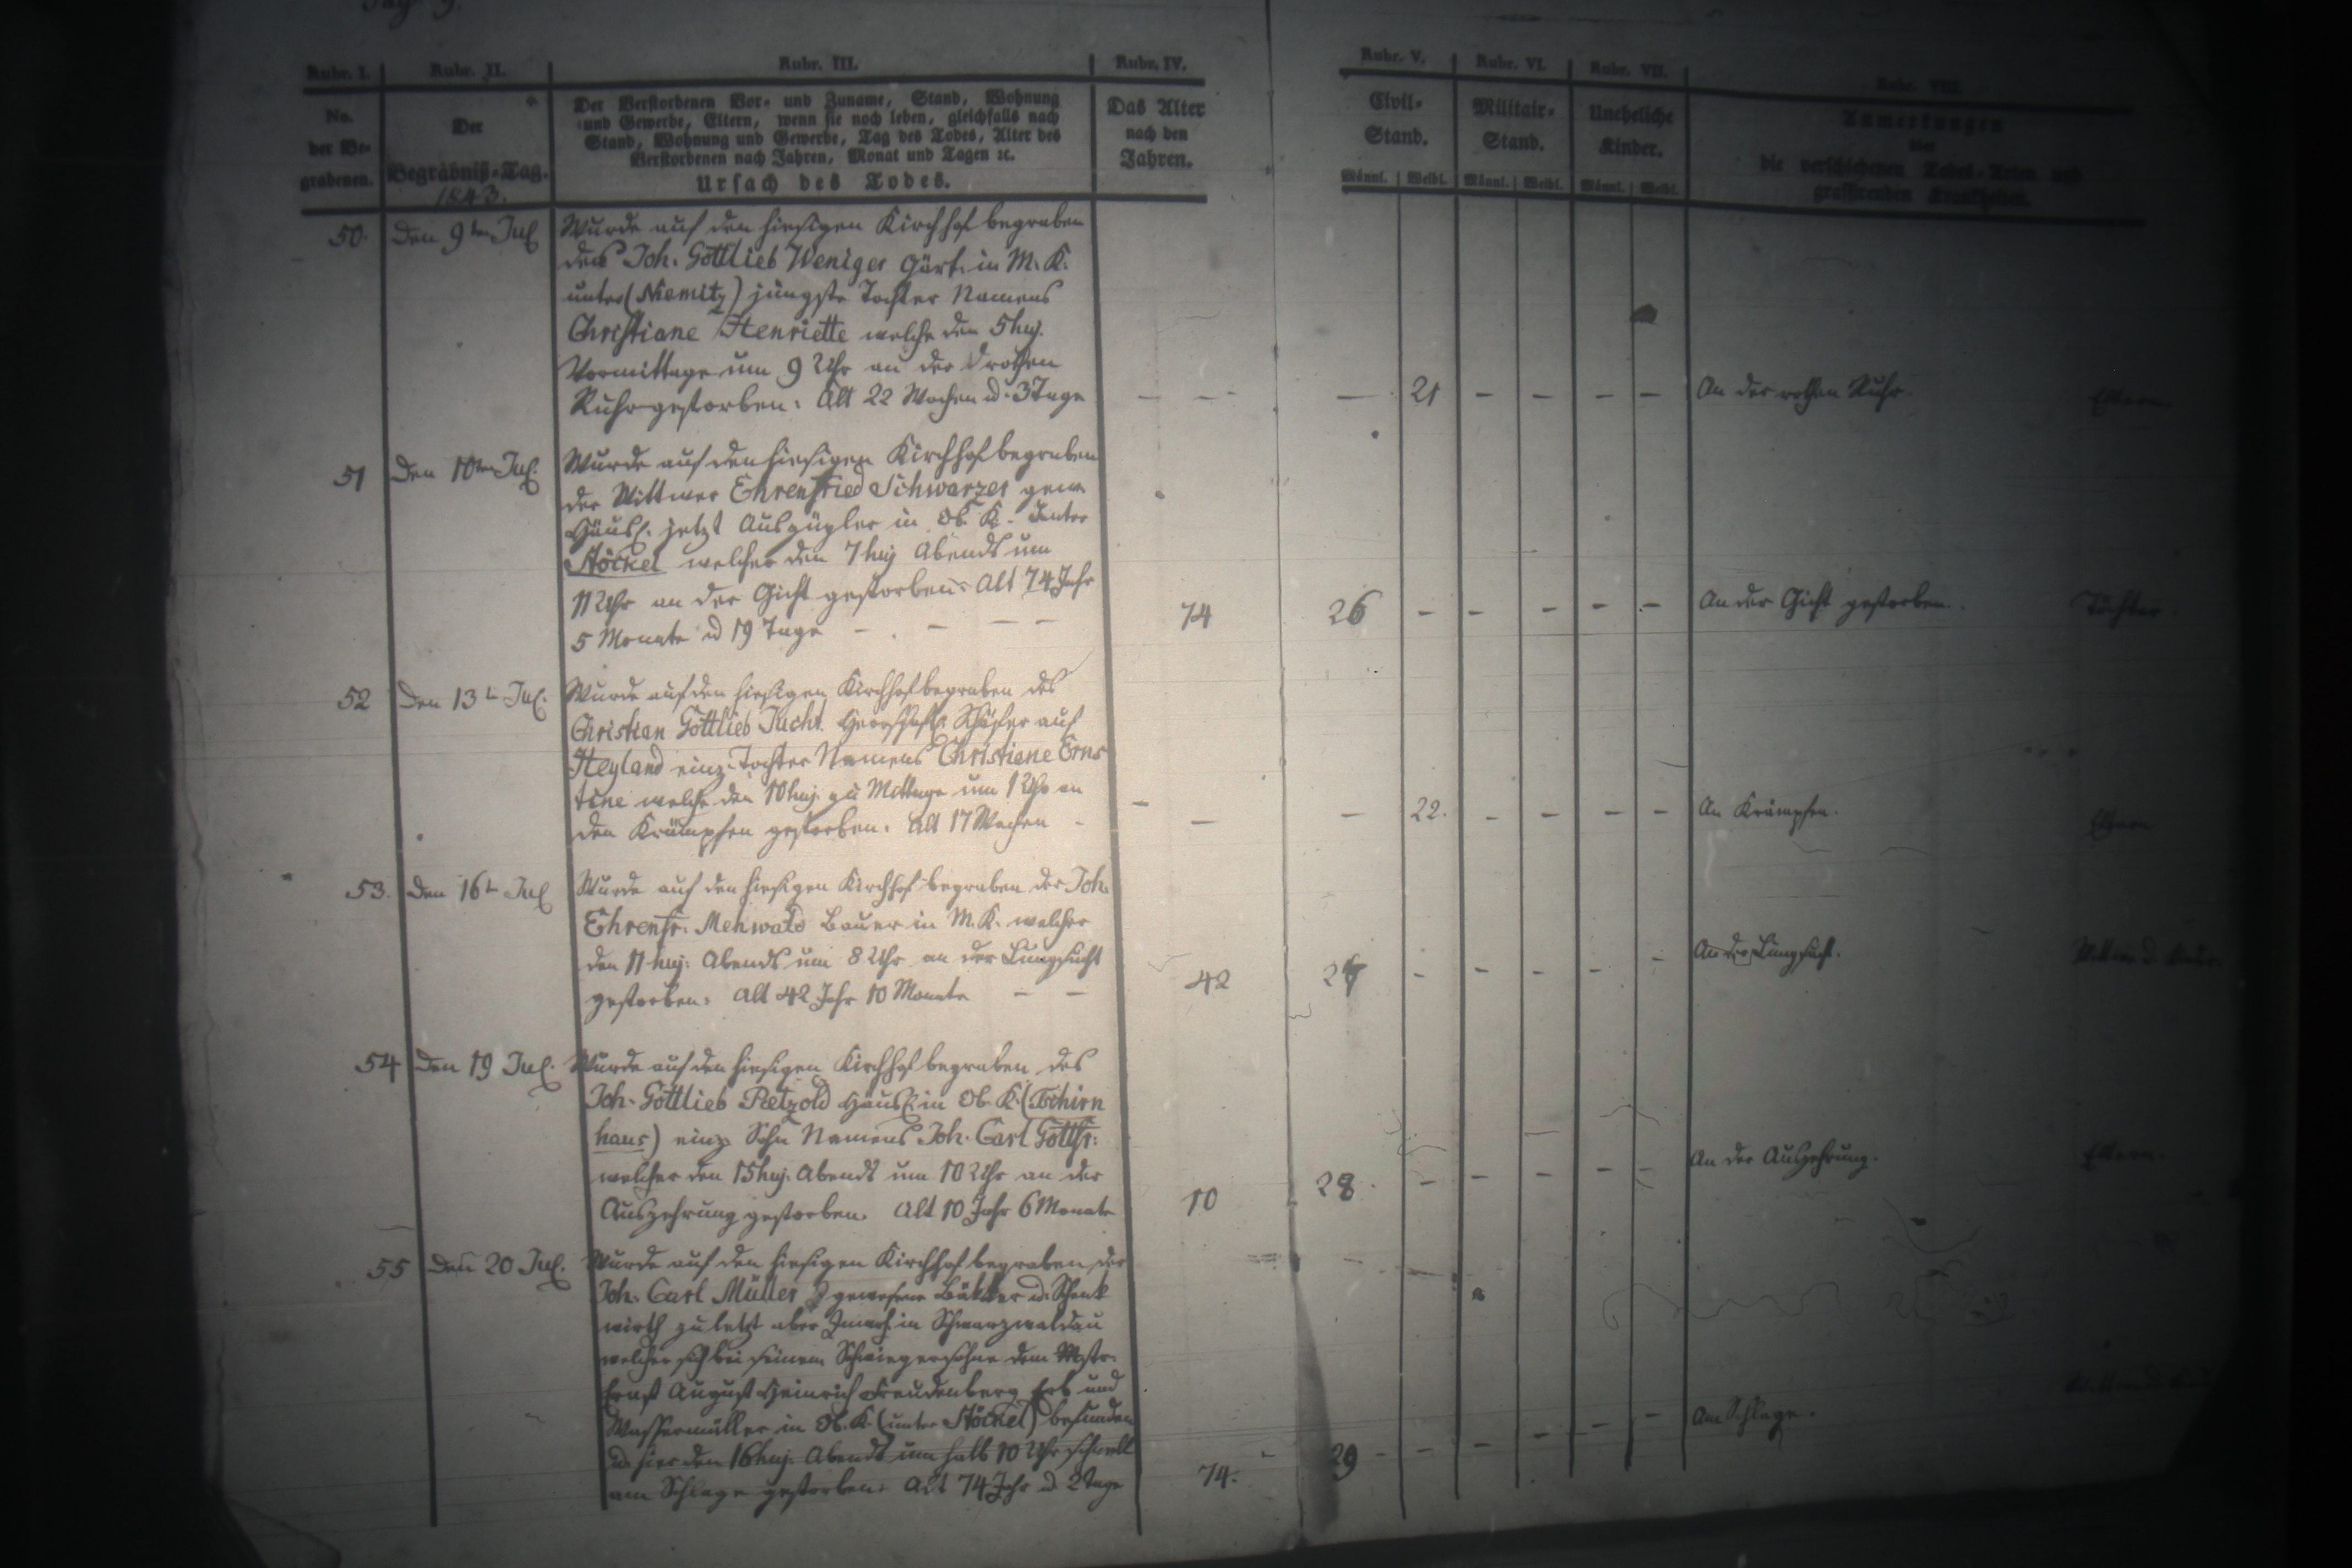 Pag. 9.
Rubr. I. Rubr. II. Rubr. III. Rubr. IV. Rubr. V. Rubr. VI. Rubr. VII. Rubr. VIII.
No. der Be- grabenen.
Der Begräbniß-Tag.
1843.
Der Verstorbenen Vor- und Zuname, Stand, Wohnung
und Gewerbe, Eltern, wenn sie noch leben, gleichfalls nach
Stand, Wohnung und Gewerbe, Tag des Todes, Alter des
Verstorbenen nach Jahren, Monat und Tagen ꝛc.
Ursach des Todes.
Das Alter
nach den
Jahren.
Civil-
Stand.
Männl. Weibl.
Militair-
Stand.
Männl. Weibl.
Uneheliche
Kinder.
Männl. Weibl.
Anmerkungen
über
die verschiedenen Todes-Arten und
grassirenden Krankheiten.
50. Den 9ten Jul Wurde auf den hiesigen Kirchhof begraben
des Joh. Gottlieb Weniger Gärt. in M. K.
unter (Niemitz) jüngste Tochter Namens
Christiane Henriette welche den 5 huj.
Vormittage um 9 Uhr an der rothen
Ruhr gestorben: Alt 22 Wochen u. 3 Tage
— — — 21 — — — — An der rothen Ruhr. Eltern
51 Den 10ten Jul. Wurde auf den hiesigen Kirchhof begraben
der Wittwer Ehrenfried Schwarzer gew.
Häusl. jetzt Auszügler in Ob. K. Unter
Stöckel welcher den 7 huj Abends um
11 Uhr an der Gicht gestorben: Alt 74 Jahr
5 Monate u 19 Tage — — — —
74 26 — — — — — An der Gicht gestorben. Töchter.
52 Den 13t Jul. Wurde auf den hiesigen Kirchhof begraben des
Christian Gottlieb Jucht. Herrschaftl. Schäfer auf
Heyland einz. Tochter Namens Christiane Erns
tine welche den 10 huj. zu Mittage um 1 Uhr an
den Krämpfen gestorben. Alt 17 Wochen -
— — — 22. — — — — An Krämpfen. Eltern
53. Den 16t Jul Wurde auf den hiesigen Kirchhof begraben der Joh.
Ehrenfr. Mehwald Bauer in M. K. welcher
den 11 huj. Abends um 8 Uhr an der Lungsucht
gestorben: Alt 42 Jahr 10 Monate — —
42 27 — — — — — An der Lungsucht. Wittwe u. Kinder
54 Den 19 Jul. Wurde auf den hiesigen Kirchhof begraben des
Joh. Gottlieb Paetzold Häusl. in Ob. K. (Tschirn
haus) einz Sohn Namens Joh. Carl Gottfr:
welcher den 15 huj. Abends um 10 Uhr an der
Auszehrung gestorben. Alt 10 Jahr 6 Monate
10 28. — — — — — An der Auszehrung. Eltern.
55 Den 20 Jul. Wurde auf den hiesigen Kirchhof begraben der
Joh. Carl Müller gewesener u. Schenk
wirth zuletzt aber Inwoh. in Schwarzwaldau
welcher sich bei seinem Schwiegersohne dem Mstr.
Ernst August Heinrich Freudenberg Erb und
Wassermüller in Ob. K. (unter Stöckel) befunden
u. hier den 16 huj. Abends um halb 10 Uhr schnell
am Schlage gestorben: Alt 74 Jahr u. 2 Tage
74. 29 — — — — — Am Schlage.